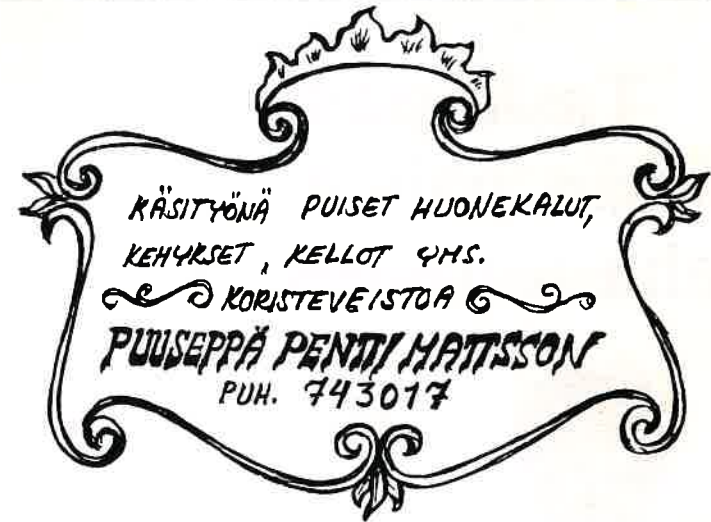 KÄSITYÖNÄ PUISET HUONEKALUT,
KEHYKSET, KELLOT YMS.
KORISTEVEISTOA
PUUSEPPÄ PENTTI MATTSSON
PUH. 743017